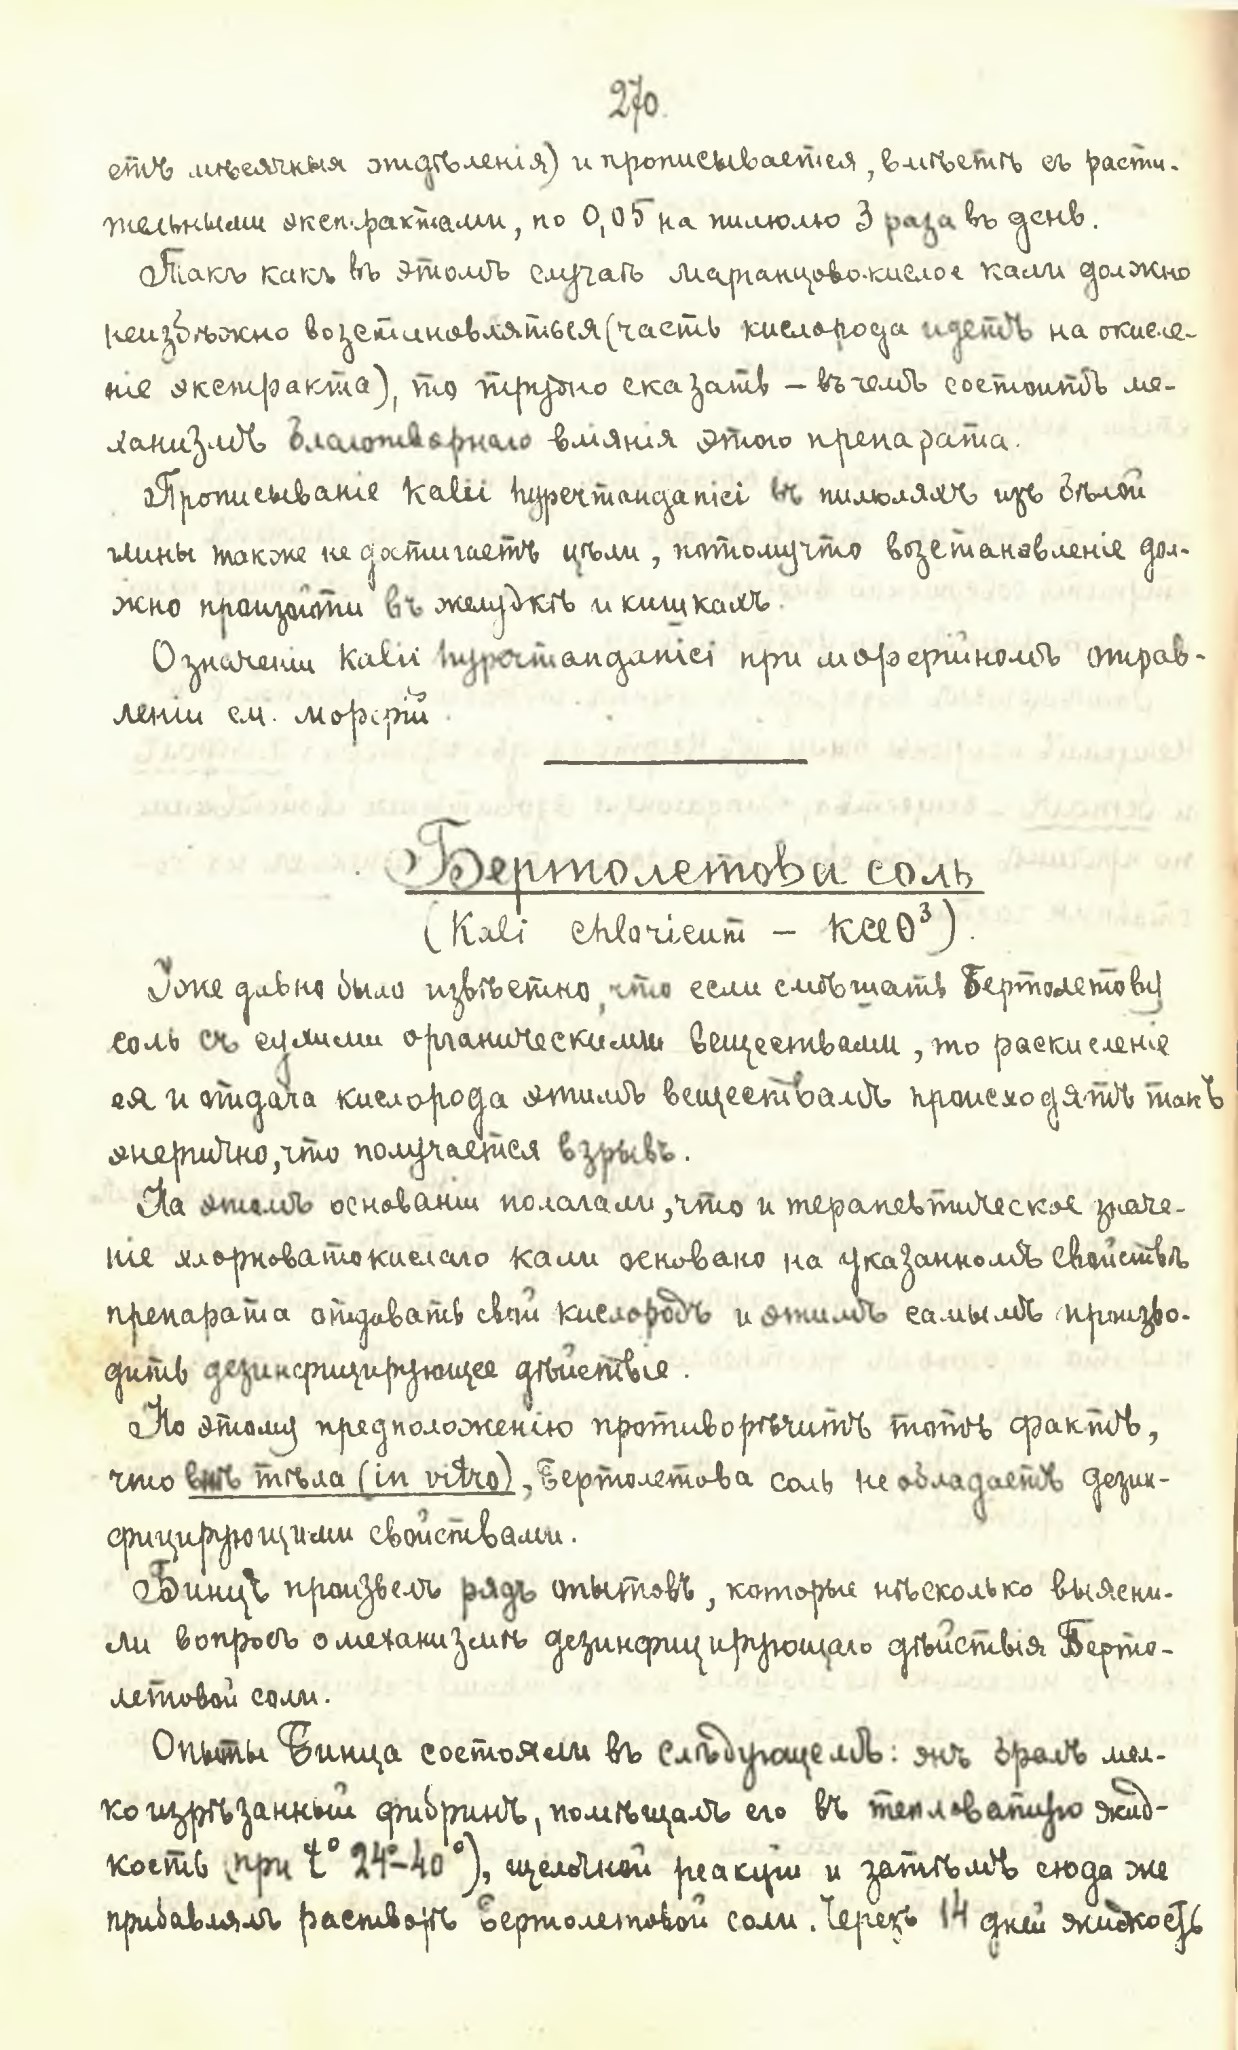 270.
етъ мѣсячныя выдѣленія) и прописывается, вмѣстѣ съ расти-
тельными экстрактами, по 0,05 на пилюлю 3 раза въ день.
Такъ какъ въ этомъ случаѣ марганцово-кислое кали должно
неизбѣжно возстановляться (часть кислорода идетъ на окисле-
ніе экстракта), то трудно сказать – въ чемъ состоитъ ме-
ханизмъ благотворнаго вліянія этого препарата.
Прописываніе Kalii hypermanganici въ пилюляхъ изъ бѣлой
глины также не достигаетъ цѣли, потому что возстановленіе дол-
жно произойти въ желудкѣ и кишкахъ.
О значеніи Kalii hypermanganici при морфійномъ отрав-
леніи см. морфій.
Бертолетова соль
(Kali chloricum – KClO³).
Уже давно было извѣстно, что если смѣшать Бертолетову
соль съ сухими органическими веществами, то раскисленіе
ея и отдача кислорода этимъ веществамъ происходятъ такъ
энергично, что получается взрывъ.
На этомъ основаніи полагали, что и терапевтическое значе-
ніе хлорноватокислаго кали основано на указанномъ свойствѣ
препарата отдавать свой кислородъ и этимъ самымъ произво-
дить дезинфицирующее дѣйствіе.
Но этому предположенію противорѣчитъ тотъ фактъ,
что внѣ тѣла (in vitro), Бертолетова соль не обладаетъ дезин-
фицирующими свойствами.
Бинцъ произвелъ рядъ опытовъ, которые нѣсколько выясни-
ли вопросъ о механизмѣ дезинфицирующаго дѣйствія Берто-
летовой соли.
Опыты Бинца состояли въ слѣдующемъ: онъ бралъ мел-
ко изрѣзанный фибринъ, помѣщалъ его въ тепловатую жид-
кость (при t° 24°–40°), щелочной реакціи и затѣмъ сюда же
прибавлялъ растворъ Бертолетовой соли. Черезъ 14 дней жидкость